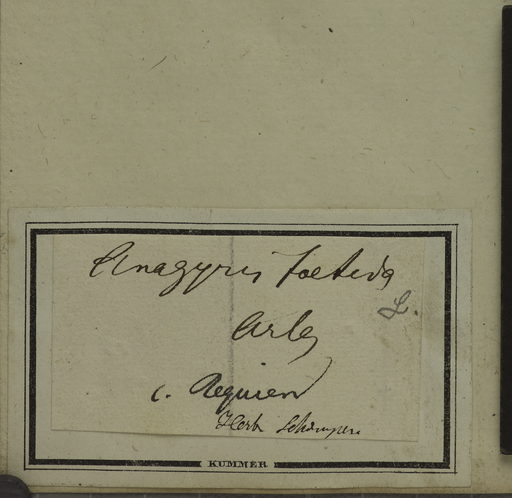 Anagyris foetida
L.
Arles
c. Requien
Herb Schimper.
KUMMER